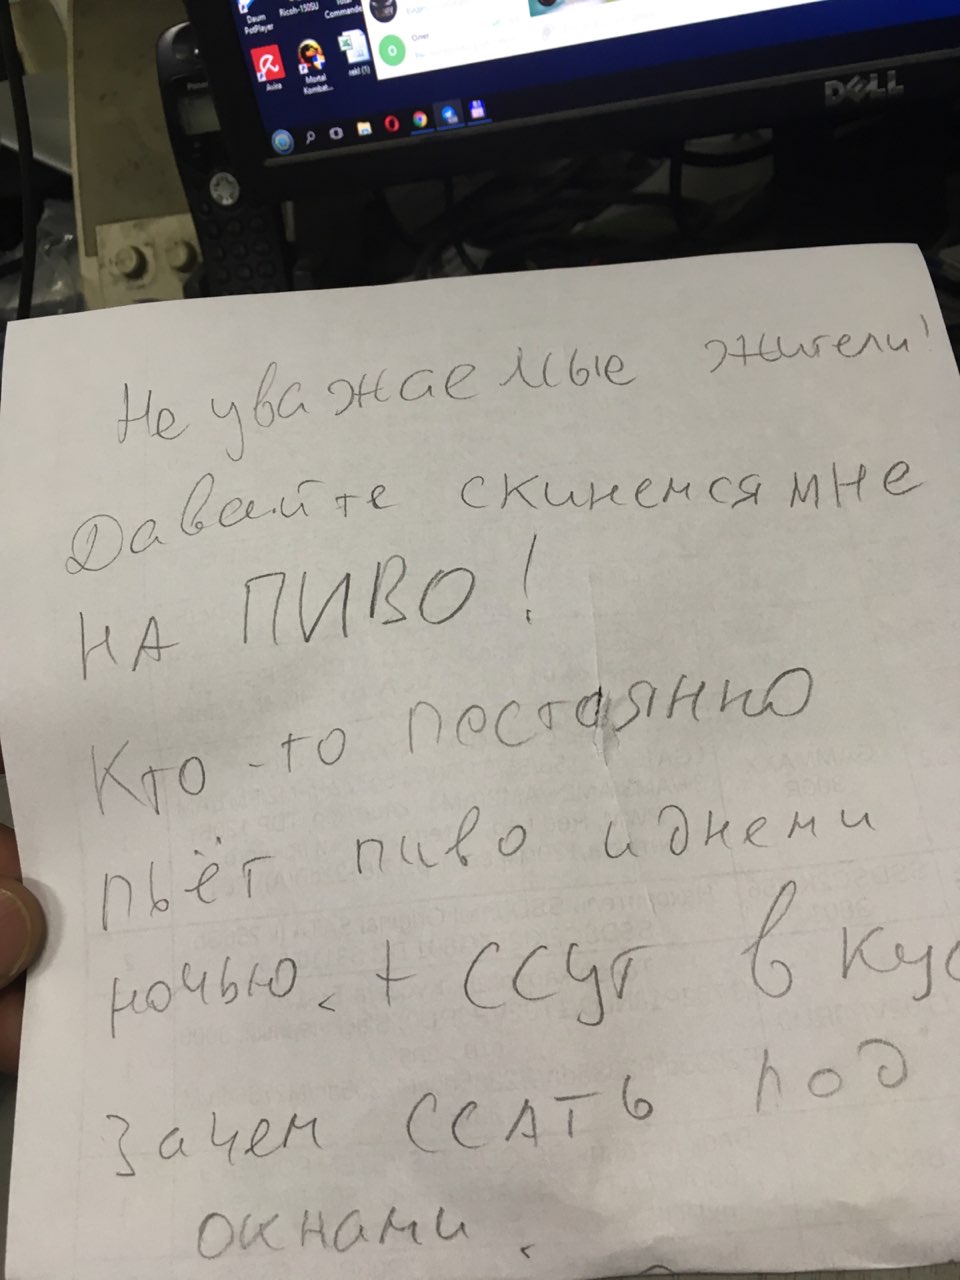 Daum
PotPlayer
Ricoh-150SU
Total
Commande
Олег
Avira
Mortal
Kombat...
rekl (1)
DELL
Не уважаемые жители!
Давайте скинемся мне
НА ПИВО!
Кто-то постоянно
пьёт пиво и днем и
ночью. + ССУТ в кус
Зачем ССАТЬ под
окнами.